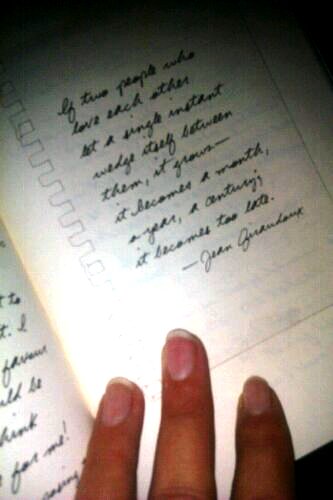 If two people who
love each other
let a single instant
wedge itself between
them, it grows—
it becomes a month,
a year, a century;
it becomes too late.
— Jean Giraudoux
t to
t. I
favour
uld be
hink
for me!